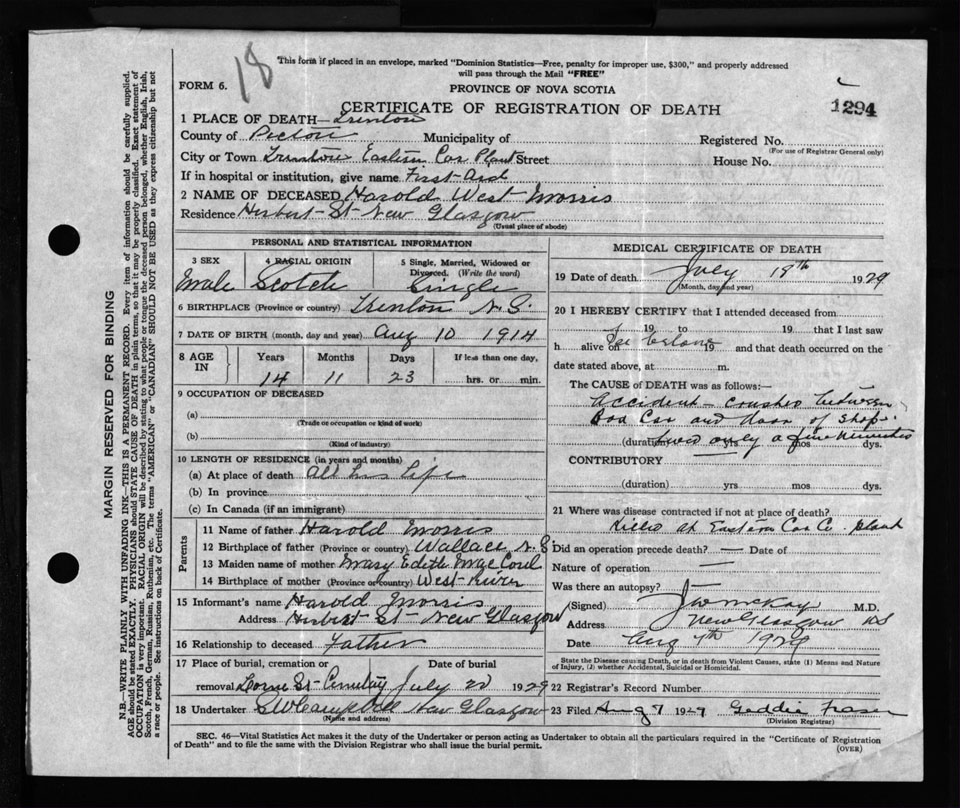 18
This form if placed in an envelope, marked "Dominion Statistics—Free, penalty for improper use, $300," and properly addressed
will pass through the Mail "FREE"
FORM 6.
PROVINCE OF NOVA SCOTIA
CERTIFICATE OF REGISTRATION OF DEATH
1294
1 PLACE OF DEATH—Trenton
County of Pictou Municipality of Registered No.
(For use of Registrar General only)
City or Town Trenton Eastern Car Plant Street House No.
If in hospital or institution, give name First-Aid
2 NAME OF DECEASED Harold West Morris
Residence Herbert St New Glasgow
(Usual place of abode)
PERSONAL AND STATISTICAL INFORMATION
3 SEX 4 RACIAL ORIGIN 5 Single, Married, Widowed or
Divorced. (Write the word)
Male Scotch Single
6 BIRTHPLACE (Province or country) Trenton N.S.
7 DATE OF BIRTH (month, day and year) Aug 10 1914
8 AGE IN Years Months Days If less than one day,
14 11 23 hrs. or min.
9 OCCUPATION OF DECEASED
(a)
(Trade or occupation or kind of work)
(b)
(Kind of industry)
10 LENGTH OF RESIDENCE (in years and months)
(a) At place of death All his life
(b) In province
(c) In Canada (if an immigrant)
Parents
11 Name of father Harold Morris
12 Birthplace of father (Province or country) Wallace N.S.
13 Maiden name of mother Mary Edith
14 Birthplace of mother (Province or country) West River
15 Informant's name Harold Morris
Address Herbert St New Glasgow
16 Relationship to deceased Father
17 Place of burial, cremation or Date of burial
removal Lorne St Cemetery July 20 1929
18 Undertaker New Glasgow
(Name and address)
MEDICAL CERTIFICATE OF DEATH
19 Date of death July 18th 1929
(Month, day and year)
20 I HEREBY CERTIFY that I attended deceased from
19 to 19 that I last saw
h alive on 19 and that death occurred on the
date stated above, at m.
The CAUSE of DEATH was as follows:—
Accident — crushed between
Box Car and door of shop.
(duration) yrs mos dys.
Lived only a few minutes
CONTRIBUTORY
(duration) yrs mos dys.
21 Where was disease contracted if not at place of death?
Killed at Eastern Car Co. plant
Did an operation precede death? — Date of
Nature of operation —
Was there an autopsy?
(Signed) J W McKay M.D.
Address New Glasgow NS
Date Aug 7th 1929
State the Disease causing Death, or in death from Violent Causes, state (1) Means and Nature
of Injury, (2) whether Accidental, Suicidal or Homicidal.
22 Registrar's Record Number
23 Filed Aug 7 1929 Geddie Fraser
(Division Registrar)
SEC. 46—Vital Statistics Act makes it the duty of the Undertaker or person acting as Undertaker to obtain all the particulars required in the "Certificate of Registration
of Death" and to file the same with the Division Registrar who shall issue the burial permit.
(OVER)
MARGIN RESERVED FOR BINDING
N.B.—WRITE PLAINLY WITH UNFADING INK—THIS IS A PERMANENT RECORD. Every item of information should be carefully supplied.
AGE should be stated EXACTLY. PHYSICIANS should STATE CAUSE OF DEATH in plain terms, so that it may be properly classified. Exact statement of
OCCUPATION is very important. RACIAL ORIGIN will be described by stating to what people or tongue the deceased person belonged, whether English, Irish,
Scotch, French, German, Russian, Ruthenian, etc. The terms "AMERICAN" or "CANADIAN" SHOULD NOT BE USED as they express citizenship but not
a race or people. See instructions on back of Certificate.